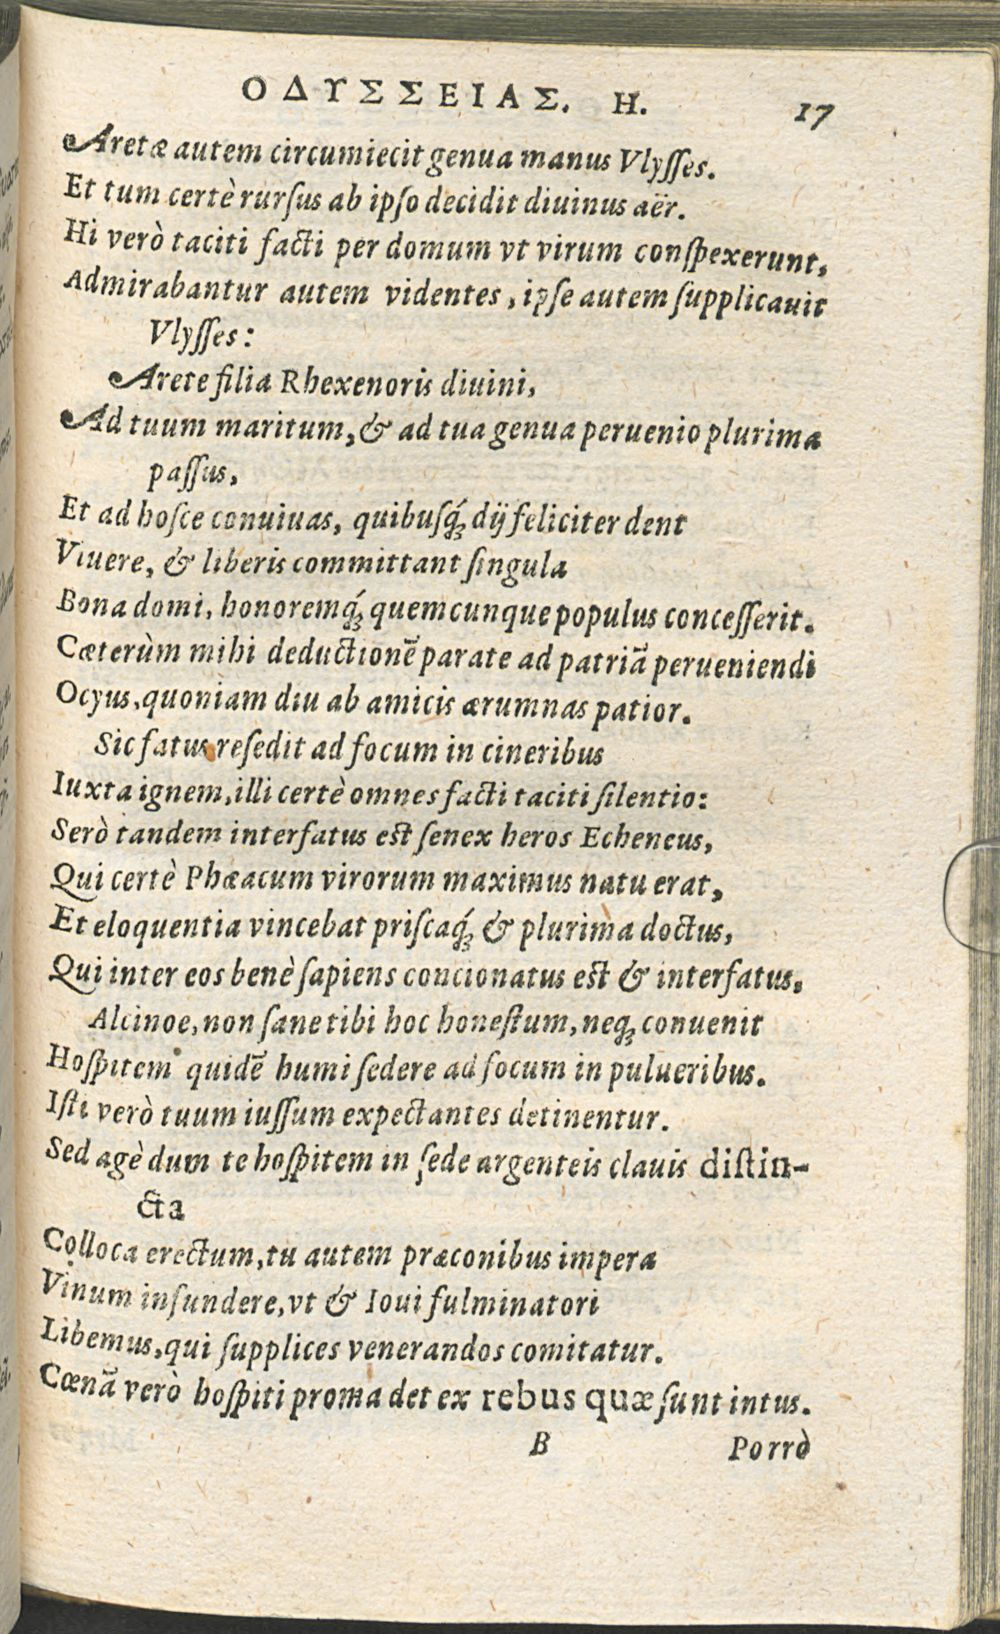 ΟΔΥΣΣΕΙΑΣ. Η. 17
Aretæ autem circumiecit genua manus Vlyſſes.
Et tum certè rurſus ab ipſo decidit diuinus aër.
Hi verò taciti facti per domum vt virum conſpexerunt,
Admirabantur autem videntes, ipſe autem ſupplicauit
Vlyſſes:
Arete filia Rhexenoris diuini,
Ad tuum maritum, & ad tua genua peruenio plurima
paſſus,
Et ad hoſce conuiuas, quibuſq́; dij feliciter dent
Viuere, & liberis committant ſingula
Bona domi, honoremq́; quemcunque populus conceſſerit.
Cæterùm mihi deductionē parate ad patriā perueniendi
Ocyus, quoniam diu ab amicis ærumnas patior.
Sic fatus reſedit ad focum in cineribus
Iuxta ignem, illi certè omnes facti taciti ſilentio:
Serò tandem interfatus eſt ſenex heros Echeneus,
Qui certè Phæacum virorum maximus natu erat,
Et eloquentia vincebat priſcaq́; & plurima doctus,
Qui inter eos benè ſapiens concionatus eſt & interfatus.
Alcinoe, non ſane tibi hoc honeſtum, neq; conuenit
Hoſpitem quidē humi ſedere ad focum in pulueribus.
Iſti verò tuum iuſſum expectantes detinentur.
Sed agè dum te hoſpitem in ſede argenteis clauis diſtin-
cta
Colloca erectum, tu autem præconibus impera
Vinum infundere, vt & Ioui fulminatori
Libemus, qui ſupplices venerandos comitatur.
Cœnā verò hoſpiti proma det ex rebus quæ ſunt intus.
B Porrò